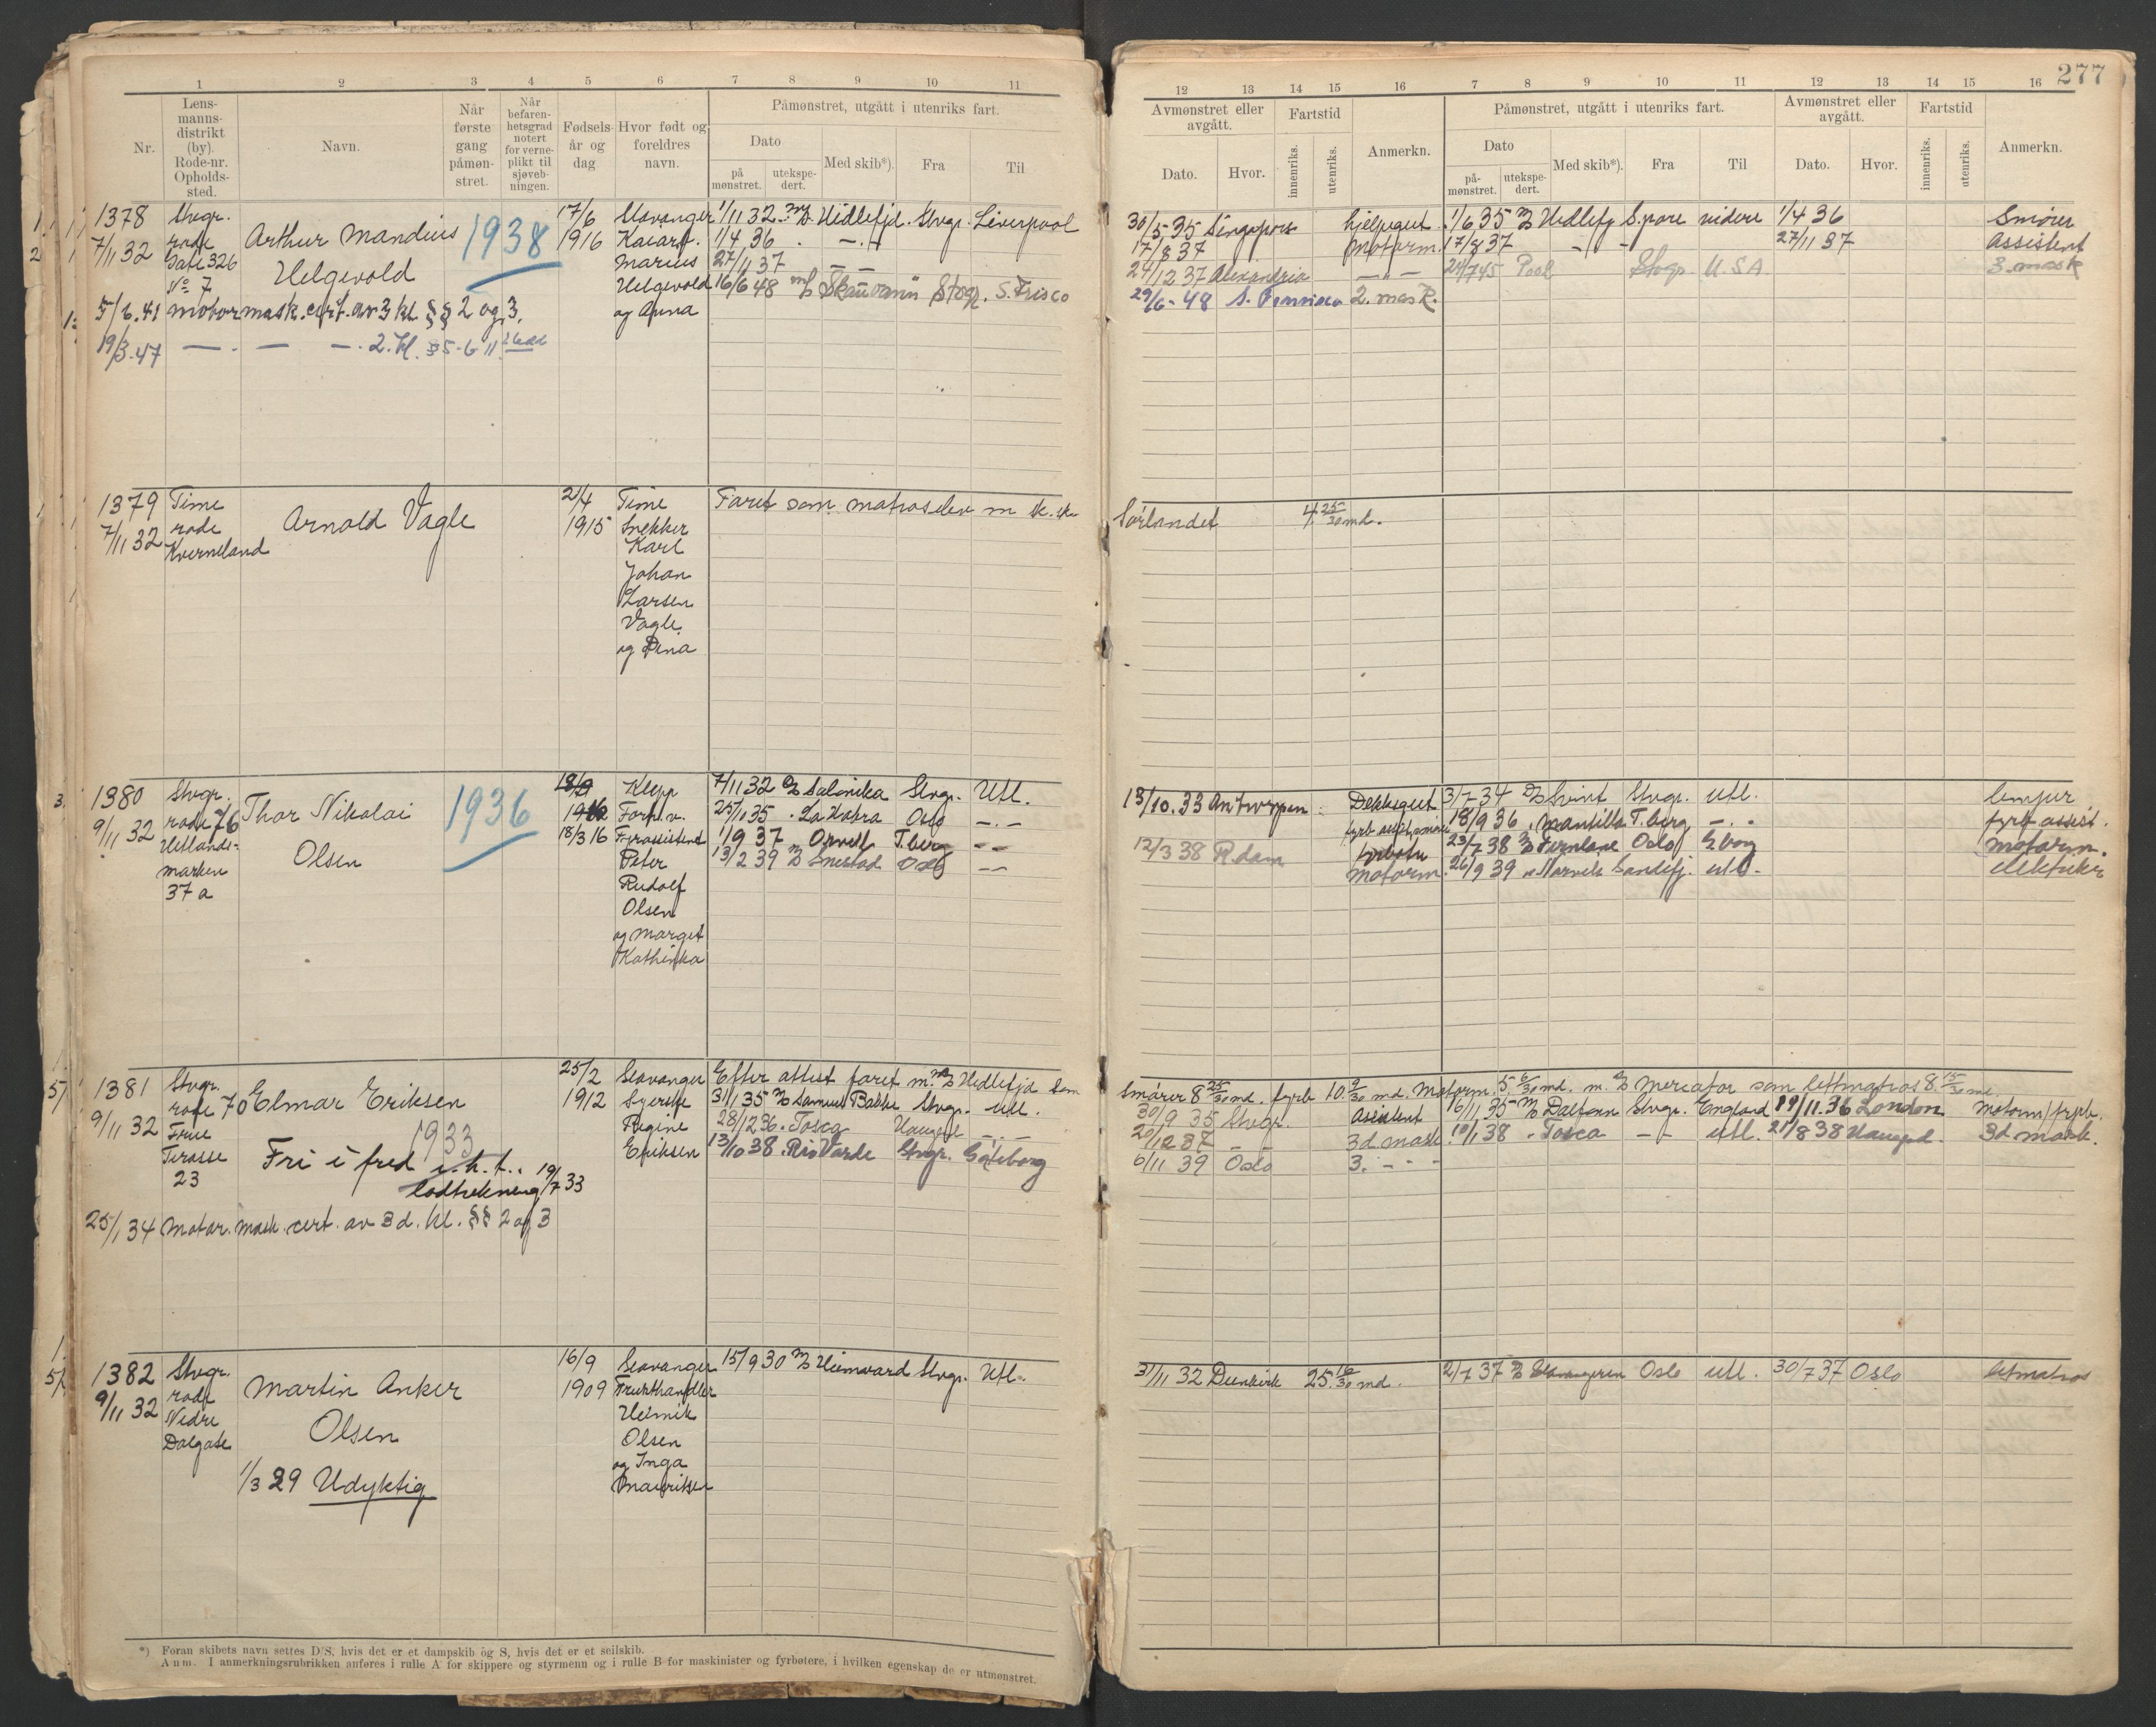 277
1 2 3 4 5 6 7 8 9 10 11
Nr. Lensmannsdistrikt (by). Rode-nr. Opholdssted. Navn. Når første gang påmønstret. Når befarenhetsgrad notert for verneplikt til sjøvebningen. Fødselsår og dag Hvor født og foreldres navn. Påmønstret, utgått i utenriks fart.
Dato Med skib*). Fra Til
på mønstret. utekspedert.
1378 Stvgr. Arthur Mandius 1938 17/6 Stavanger 1/11 32 M/S Hidlefjd. Stvgr. Liverpool
7/11 32 rode 1916 1/4 36 . — . —
Gate 326 Helgevold Marius 27/11 37 — —
No 7 Helgevold 16/6 48 M/S Skauvann Stvgr. S. Frisco
5/6. 41 motormask. cert. av 3 kl §§ 2 og 3. og Anna
19/3. 47 — . — — . 2. kl. § 5-6 11
1379 Time Arnold Vagle 2/4 Time Faret som matroselev m sk. sk.
7/11 32 rode 1915 Snekker
Kverneland Karl
Johan
Larsen
Vagle
og Dina
1380 Stvgr. Thor Nikolai 1936 Klepp 7/11 32 D/S Salonika Stvgr. Utl.
9/11 32 rode 76 Forh.v. 25/11 35 . La Habra Oslo — . —
Hetlands- Olsen 18/3 16 Fyrassistent 1/9 37 Orwell T.berg — —
marken Peter 13/2 39 M/S Snestad Oslo — —
37 a Rudolf
Olsen
og Marget
Kathinka
1381 Stvgr. Elmar Eriksen 25/2 Stavanger Efter attest faret m. M/S Hidlefjd som
rode 70 1912 Syerske 31/1 35 M/S Samuel Bakke Stvgr. utl.
9/11 32 Frue 1933 Regine 28/12 36 . Tosca Hauges. — . —
Terasse Fri i fred i.h.t. Eriksen 13/10 38 . Rio Varde Stvgr. Göteborg
23 lodtrekning 19/7 33
25/1 34 Motor. mask. cert. av 3 d. kl. §§ 2 og 3
1382 Stvgr. Martin Anker 16/9 Stavanger 15/9 30 M/S Heimvard Stvgr. Utl.
9/11 32 rode 1909 Frukthandler
Nedre Olsen Heinrik
Dalgate Olsen
og Inga
1/3 29 Udyktig Mauritsen
*) Foran skibets navn settes D/S, hvis det er et dampskib og S, hvis det er et seilskib.
Anm. I anmerkningsrubrikken anføres i rulle A for skippere og styrmenn og i rulle B for maskinister og fyrbøtere, i hvilken egenskap de er utmønstret.
12 13 14 15 16 7 8 9 10 11 12 13 14 15 16
Avmønstret eller avgått. Fartstid Anmerkn. Påmønstret, utgått i utenriks fart. Avmønstret eller avgått. Fartstid Anmerkn.
Dato. Hvor. innenriks. utenriks. Dato påmønstret. utekspedert. Med skib*). Fra Til Dato. Hvor. innenriks. utenriks.
30/5 35 Singapore hjelpegut. 1/6 35 M/S Hidlefj S.pore videre 1/4 36 Smører
17/8 37 Motorm. 17/8 37 — — 27/11 37 Assistent
24/12 37 Alexandria — . — 24/7 45 Pool Stvgr. U.S.A 3. mask
29/6 - 48 S. Fransisco 2. mask.
Sørlandet 4 25/30 md.
13/10. 33 Antwerpen Dekksgut 3/7 34 D/S Svint Stvgr. utl. lempur
18/9 36 . Mantilla T.berg — . — fyrb assist.
12/3 38 R.dam fyrbøter 23/7 38 M/S Fernlane Oslo G.borg motorm.
motorm. 26/9 39 Sandefj. utl. elektriker
Smører 8 25/30 md. fyrb 10 md. Motorm. 5 6/30 md. m. M/S Mercator som lettmatros 8 15/30 md.
30/9 35 Stvgr. Assistent 16/11 35 M/S Dalfonn Stvgr. England 19/11. 36 London Motorm/fyrb.
20/12 37 — — 3d mask 10/1 38 . Tosca — — utl. 21/8 38 Haugesd. 3d mask.
6/11 39 Oslo 3. — —
3/11 32 Dunkirk 25 16/30 md. 2/7 37 D/S Stavangeren Oslo utl. 30/7 37 Oslo letmatros